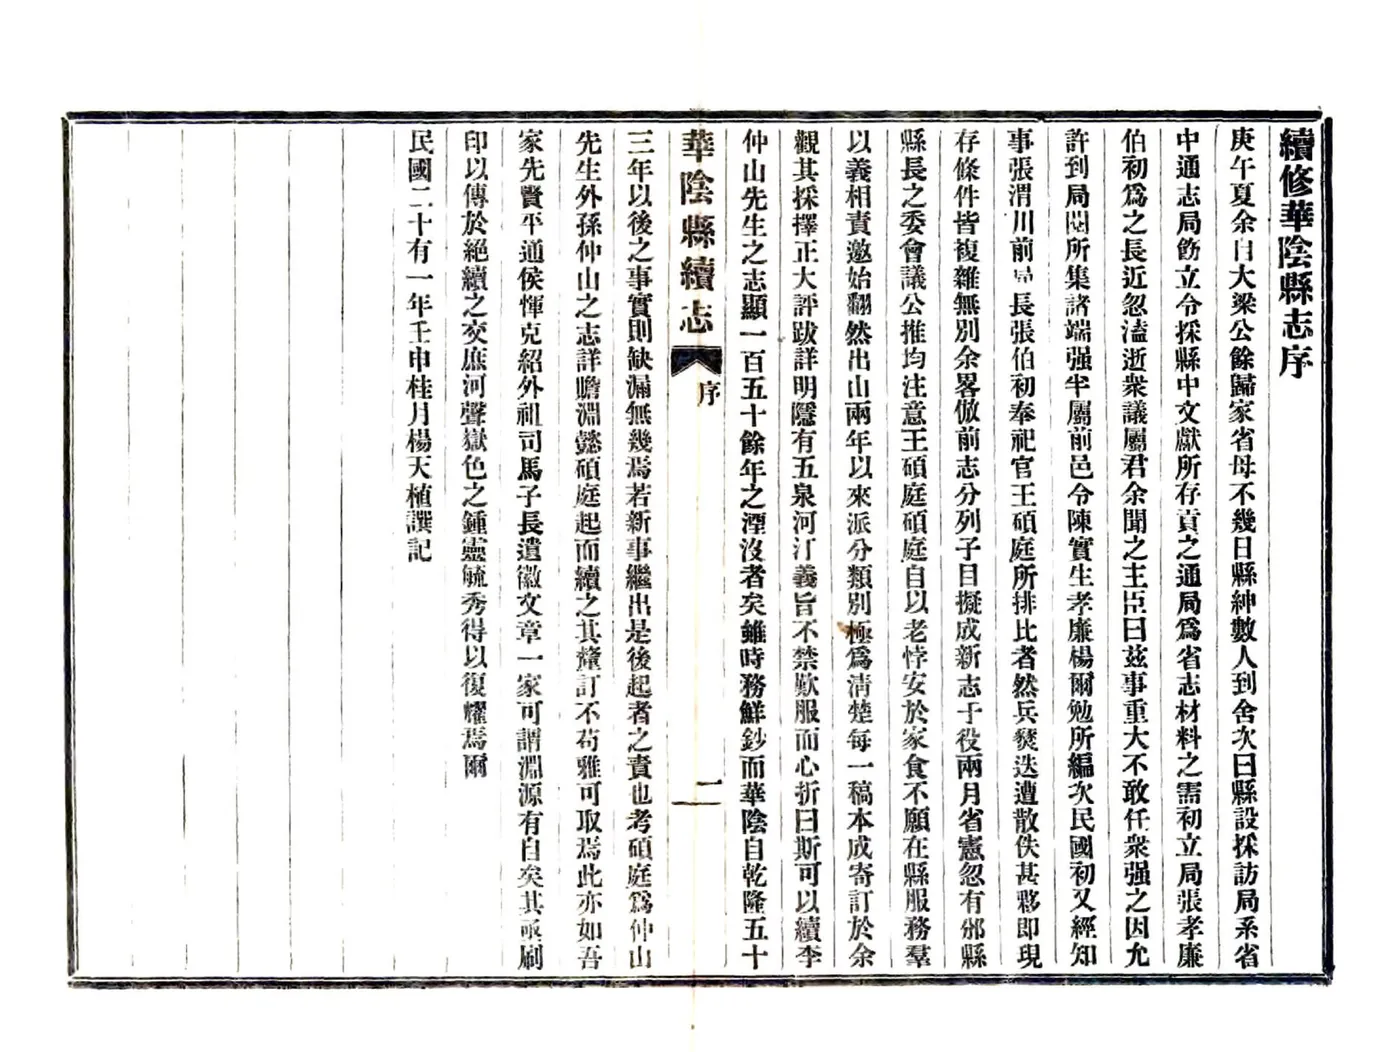 續修華陰縣志序
庚午夏余自大梁公餘歸家省母不幾日縣紳數人到舍次曰縣設採訪局系省
中通志局飭立令採縣中文獻所存貢之通局爲省志材料之需初立局張孝廉
伯初爲之長近忽溘逝衆議屬君余聞之主臣曰茲事重大不敢任衆强之因允
許到局閱所集諸端强半屬前邑令陳實生孝廉楊爾勉所編次民國初又經知
事張渭川前局長張伯初奉祀官王碩庭所排比者然兵燹迭遭散佚甚夥即現
存條件皆複雜無別余畧倣前志分列子目擬成新志于役兩月省憲忽有郧縣
縣長之委會議公推均注意王碩庭碩庭自以老悖安於家食不願在縣服務羣
以義相責邀始翻然出山兩年以來派分類別極爲清楚每一稿本成寄訂於余
觀其採擇正大評跋詳明隱有五泉河汀義旨不禁歎服而心折曰斯可以續李
仲山先生之志顯一百五十餘年之湮沒者矣雖時務鮮鈔而華陰自乾隆五十
華陰縣續志
序
二
三年以後之事實則缺漏無幾焉若新事繼出是後起者之責也考碩庭爲仲山
先生外孫仲山之志詳贍淵懿碩庭起而續之其釐訂不苟雅可取焉此亦如吾
家先賢平通侯惲克紹外祖司馬子長遺徽文章一家可謂淵源有自矣其亟刷
印以傳於絕續之交庶河聲嶽色之鍾靈毓秀得以復耀焉爾
民國二十有一年壬申桂月楊天植譔記